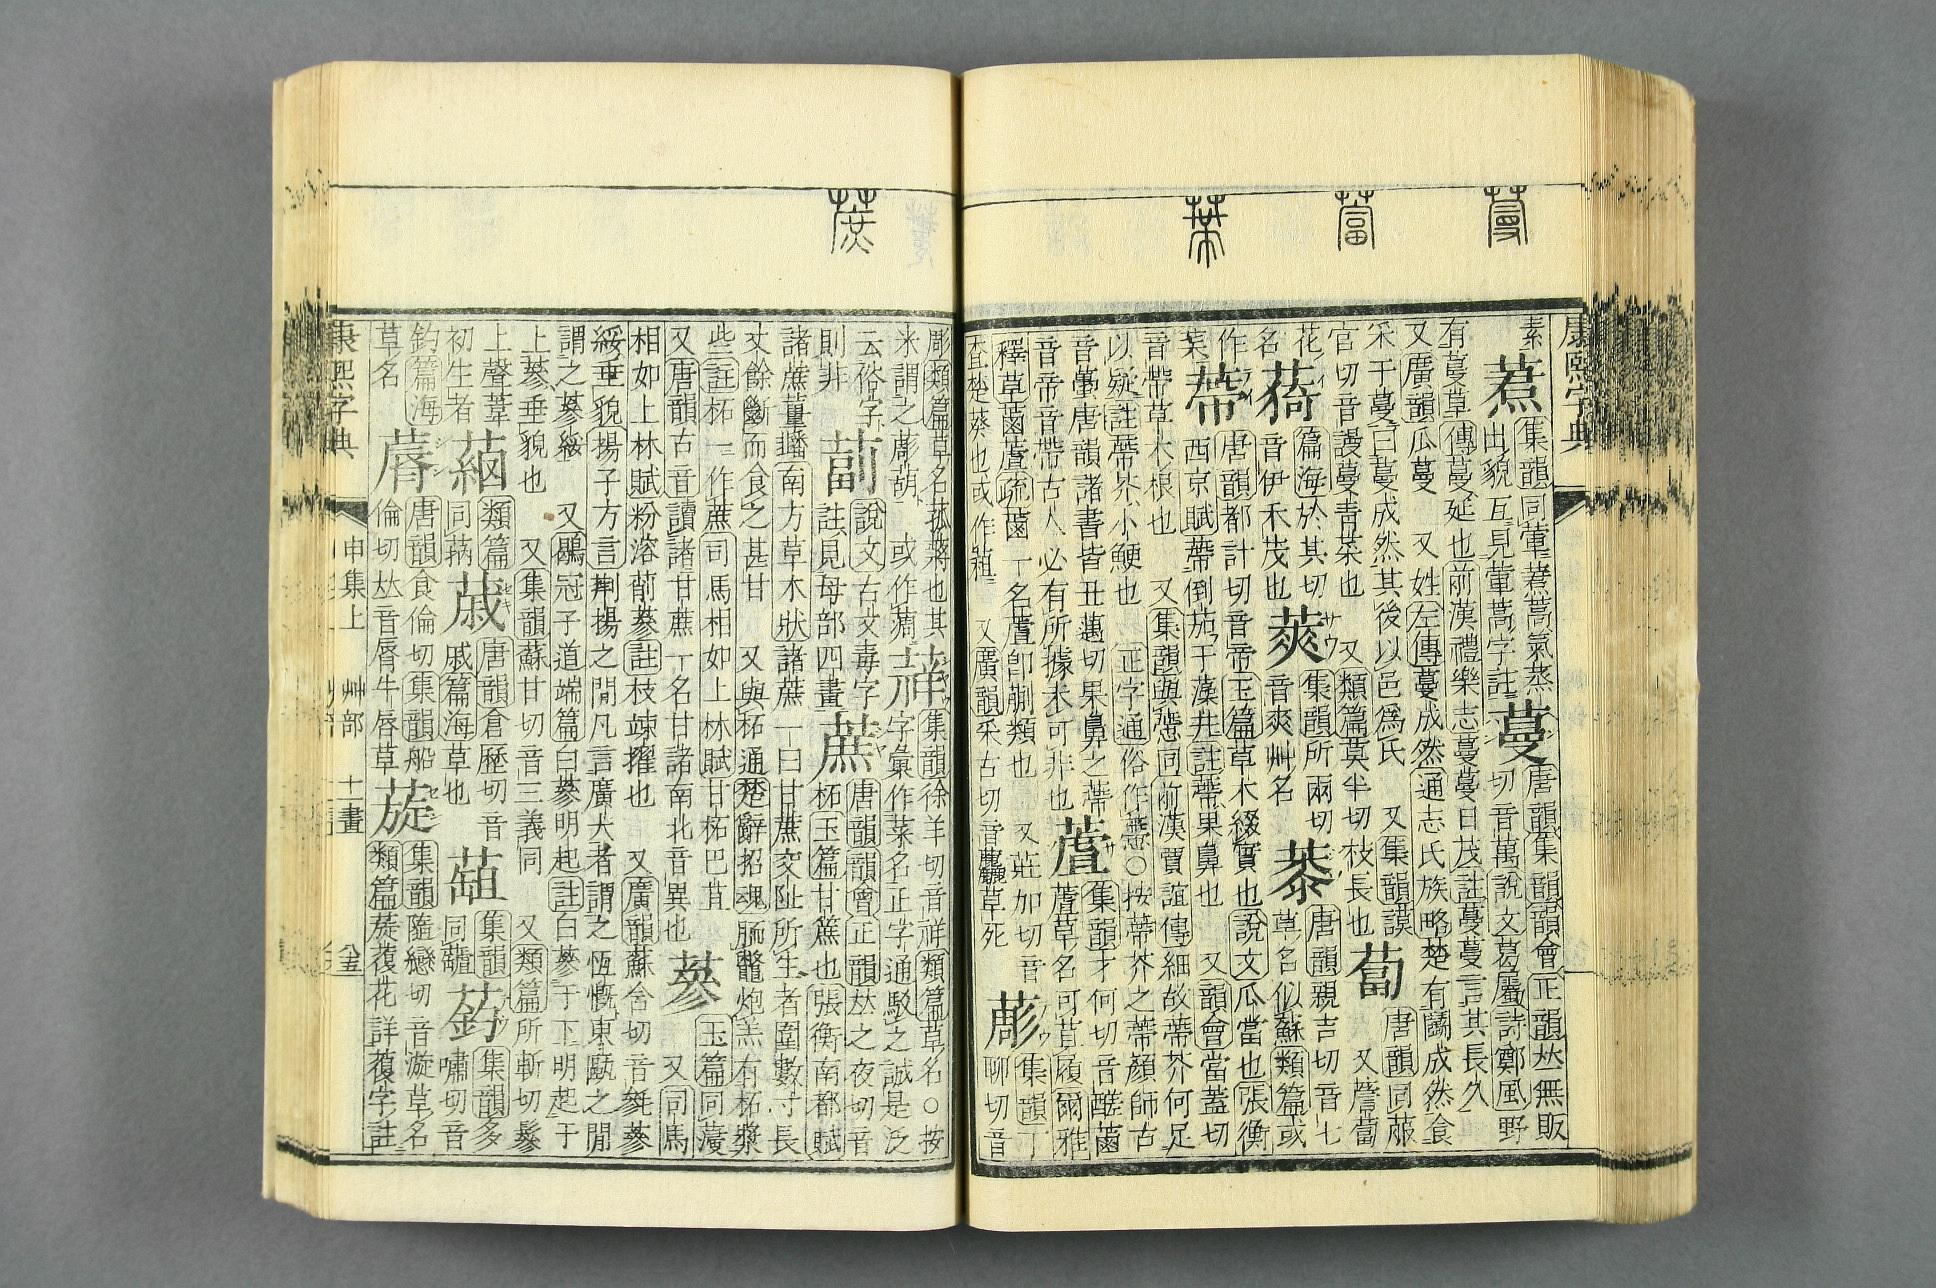 康熙字典
素
集韻同葷
出貌互見葷蒿字註
蔓
唐韻集韻韻會正韻𠀤無販
切音萬說文葛屬詩鄭風野
有蔓草傳蔓延也前漢禮樂志蔓蔓日茂註蔓蔓言其長久
又廣韻瓜蔓 又姓左傳蔓成然通志氏族略楚有鬭成然食
采于蔓曰蔓成然其後以邑爲氏 又集韻謨
官切音謾蔓菁菜也 又類篇莫半切枝長也
蔔
唐韻同菔
花
名
篇海於其切
音伊禾茂也
集韻所兩切
音爽艸名
唐韻親吉切音七
草名似蘇類篇或
作
菜
蔕
唐韻都計切音帝玉篇草木綴實也說文瓜當也張衡
西京賦蔕倒茄于藻井註蔕果鼻也 又韻會當蓋切
音帶草木根也 又集韻與懘同前漢賈誼傳細故蔕芥何足
以疑註蔕芥小鯁也 正字通俗作蒂○按蔕芥之蔕顏師古
音蠆唐韻諸書皆丑邁切果鼻之蔕
音帝音帶古人必有所據未可非也
蔖
集韻才何切音醝菌
蔖草名可苴履爾雅
釋草菌蔖疏菌一名蔖卽蒯類也 又莊加切音
查楚葵也或作 又廣韻采古切音麤草死
集韻丁
聊切音
彫類篇草名菰蔣也其
米謂之 或作
集韻徐羊切音祥類篇草名○按
字彙作菜名正字通駁之誠是泛
云俗字
則非
說文古文毒字
註見毋部四畫
蔗
唐韻韻會正韻𠀤之夜切音
柘玉篇甘䕡也張衡南都賦
諸蔗薑 南方草木狀諸蔗一曰甘蔗交趾所生者圍數寸長
丈餘斷而食之甚甘 又與柘通楚辭招魂胹鼈炮羔有柘漿
些註柘一作蔗司馬相如上林賦甘柘巴苴
又唐韻古音讀諸甘蔗一名甘諸南北音異也
蔘
玉篇同薓
又司馬
相如上林賦粉溶萷蔘註枝竦擢也 又廣韻蘇含切音毿蔘
綏垂貌揚子方言荆揚之閒凡言廣大者謂之恆慨東甌之閒
謂之蔘綏 又鶡冠子道端篇曰蔘明起註白蔘于下明起于
上蔘垂貌也 又集韻蘇甘切音三義同 又類篇所斬切鬖
上聲葦
初生者
類篇
同蒳
唐韻倉歷切音
戚篇海草也
集韻
集韻多
嘯切音
釣篇海
草名
唐韻食倫切集韻船
倫切𠀤音脣牛脣草
蔙
集韻隨戀切音漩草名
類篇蔙復花詳 字註
康熙字典
申集上
艸部
十一畫